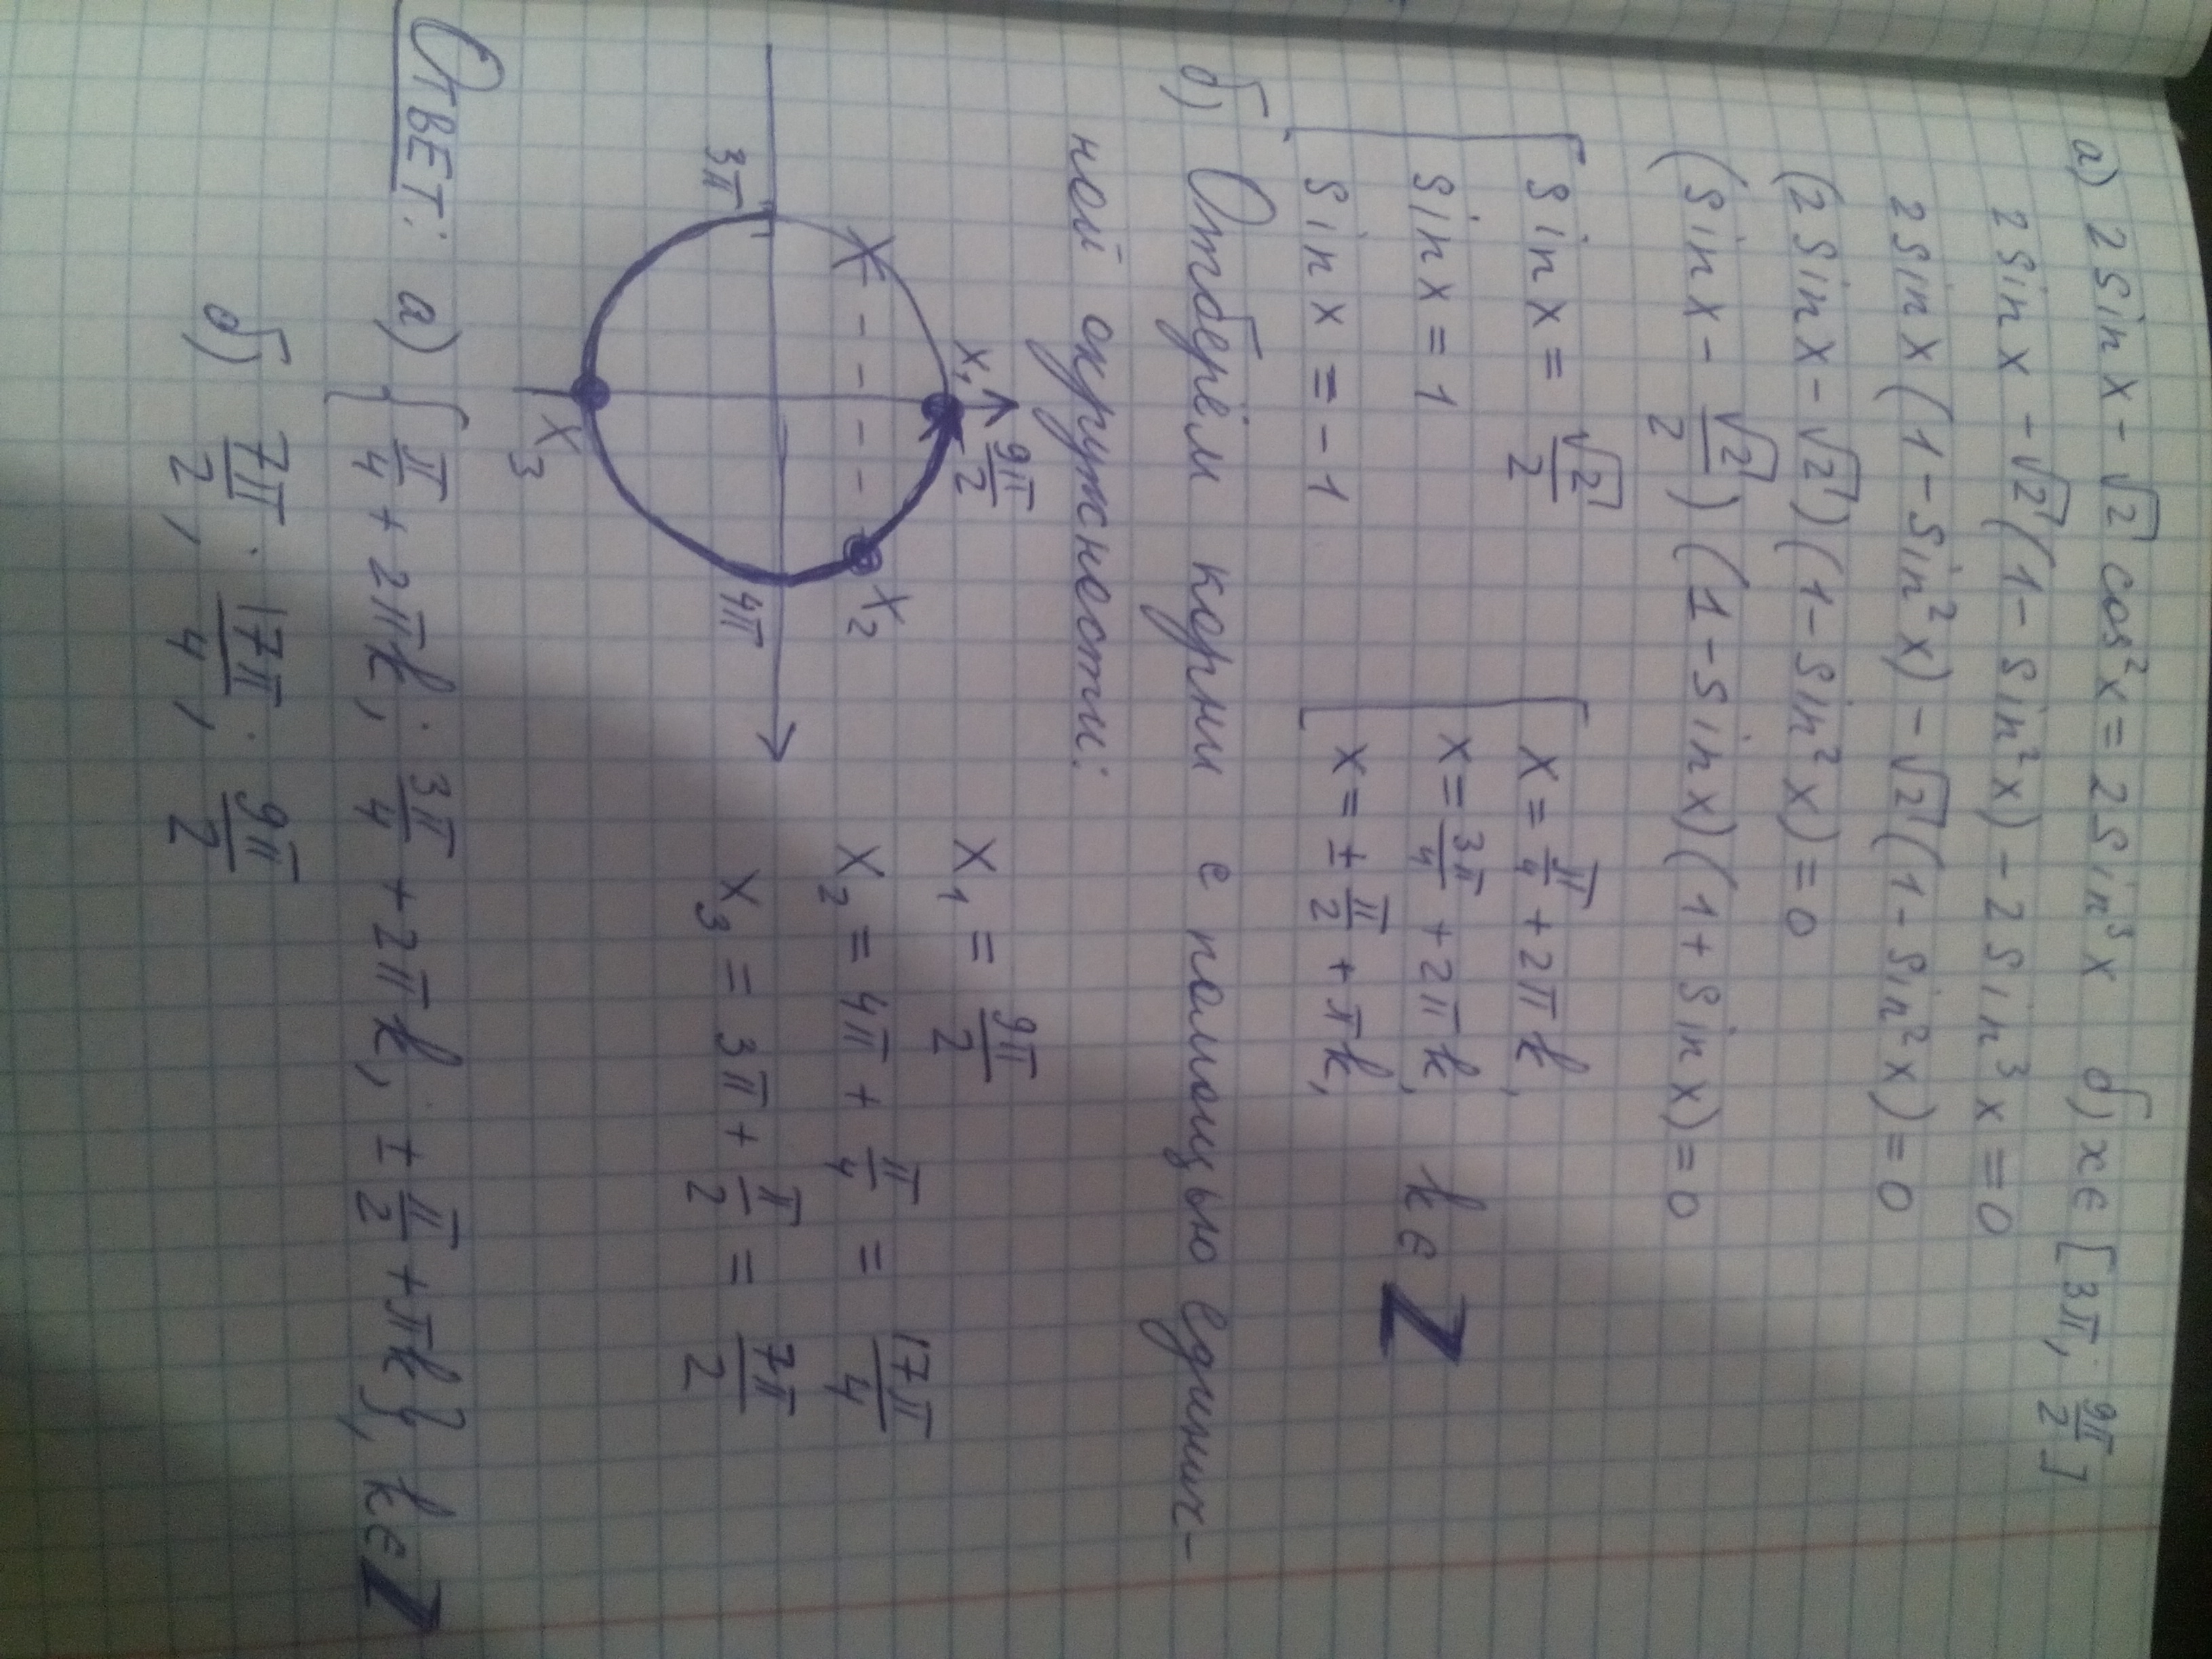 а) 2 sin x - √2 cos² x = 2 sin³ x б) x ∈ [3π; 9π/2]
2 sin x - √2 (1 - sin² x) - 2 sin³ x = 0
2 sin x (1 - sin² x) - √2 (1 - sin² x) = 0
(2 sin x - √2) (1 - sin² x) = 0
(sin x - √2/2) (1 - sin x) (1 + sin x) = 0
[ sin x = √2/2 [ x = π/4 + 2πk,
sin x = 1 x = 3π/4 + 2πk, k ∈ Z
sin x = -1 x = ± π/2 + πk,
б) Отберём корни с помощью единич-
ной окружности:
x₁ 9π/2
x₂
3π 4π
x₃
x₁ = 9π/2
x₂ = 4π + π/4 = 17π/4
x₃ = 3π + π/2 = 7π/2
Ответ: а) { π/4 + 2πk; 3π/4 + 2πk; ± π/2 + πk}, k ∈ Z
б) 7π/2; 17π/4; 9π/2